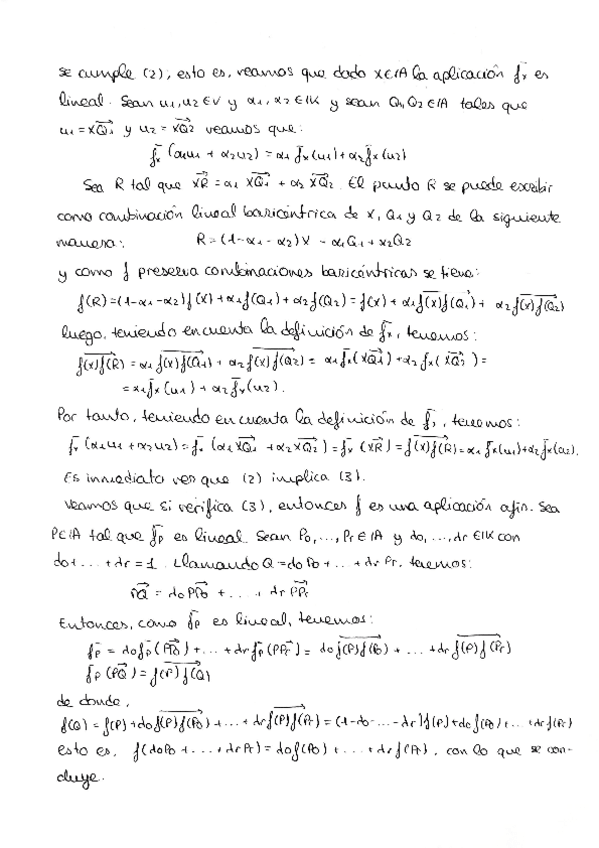 se cumple (2), esto es, veamos que dado x∈A la aplicación f̄ₓ es
lineal. Sean u1, u2 ∈ V y α1, α2 ∈ IK y sean Q1, Q2 ∈ A tales que
u1 = \overrightarrow{XQ1} y u2 = \overrightarrow{XQ2} veamos que:
f̄ₓ (α1u1 + α2u2) = α1 f̄ₓ(u1) + α2 f̄ₓ(u2)
Sea R tal que \overrightarrow{XR} = α1 \overrightarrow{XQ1} + α2 \overrightarrow{XQ2}. El punto R se puede escribir
como combinación lineal baricéntrica de X, Q1 y Q2 de la siguiente
manera: R = (1-α1-α2)X - α1Q1 + α2Q2
y como f preserva combinaciones baricéntricas se tiene:
f(R) = (1-α1-α2)f(X) + α1f(Q1) + α2f(Q2) = f(x) + α1\overrightarrow{f(x)f(Q1)} + α2\overrightarrow{f(x)f(Q2)}
luego, teniendo en cuenta la definición de f̄ₓ, tenemos:
\overrightarrow{f(x)f(R)} = α1 \overrightarrow{f(x)f(Q1)} + α2 \overrightarrow{f(x)f(Q2)} = α1f̄ₓ(\overrightarrow{XQ1}) + α2f̄ₓ(\overrightarrow{XQ2}) =
= α1f̄ₓ(u1) + α2f̄ₓ(u2).
Por tanto, teniendo en cuenta la definición de f̄ₓ, tenemos:
f̄ₓ (α1u1 + α2u2) = f̄ₓ (α1\overrightarrow{XQ1} + α2\overrightarrow{XQ2}) = f̄ₓ (\overrightarrow{XR}) = \overrightarrow{f(x)f(R)} = α1 f̄ₓ(u1) + α2f̄ₓ(u2).
Es inmediato ver que (2) implica (3).
Veamos que si verifica (3), entonces f es una aplicación afín. Sea
P∈A tal que f̄p es lineal. Sean P0, ..., Pr ∈ A y λ0, ..., λr ∈ IK con
λ0 + ... + λr = 1. Llamando Q = λ0P0 + ... + λrPr, tenemos:
\overrightarrow{PQ} = λ0\overrightarrow{PP0} + ... + λr\overrightarrow{PPr}
Entonces, como f̄p es lineal, tenemos:
f̄p = λ0f̄p(\overrightarrow{PP0}) + ... + λrf̄p(\overrightarrow{PPr}) = λ0\overrightarrow{f(P)f(P0)} + ... + λr\overrightarrow{f(P)f(Pr)}
f̄p (\overrightarrow{PQ}) = \overrightarrow{f(P)f(Q)}
de donde,
f(Q) = f(P) + λ0\overrightarrow{f(P)f(P0)} + ... + λr\overrightarrow{f(P)f(Pr)} = (1-λ0-...-λr)f(P) + λ0f(P0) + ... + λrf(Pr)
esto es, f(λ0P0 + ... + λrPr) = λ0f(P0) + ... + λrf(Pr), con lo que se con-
cluye.